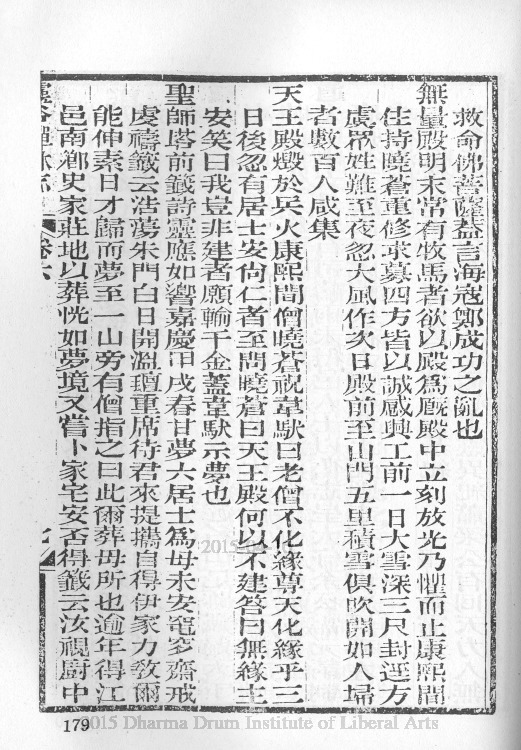 救命佛菩薩葢言海寇鄭成功之亂也
無量殿明末常有牧馬者欲以殿爲廐殿中立刻放光乃懼而止康熙間
住持曉蒼重修求募四方皆以誠感興工前一日大雪深三尺封逕方
虞眾姓難至夜忽大風作次日殿前至山門五里積雪俱吹開如人埽
者數百人咸集
天王殿燬於兵火康熙間僧曉蒼祝韋馱曰老僧不化緣尊天化緣乎三
日後忽有居士安尙仁者至問曉蒼曰天王殿何以不建答曰無緣主
安笑曰我豈非建者願輸千金蓋韋馱示夢也
聖師塔前籤詩靈應如響嘉慶甲戌春甘夢六居士爲母未安窀穸齋戒
虔禱籤云浩蕩朱門白日開溫瓊重席待君來提攜自得伊家力敎爾
能伸素日才歸而夢至一山旁有僧指之曰此爾葬母所也逾年得江
邑南鄕史家莊地以葬恍如夢境又嘗卜家宅安否得籤云汝視廚中
靈谷禪林志 卷六 七
179
2015 Dharma Drum Institute of Liberal Arts